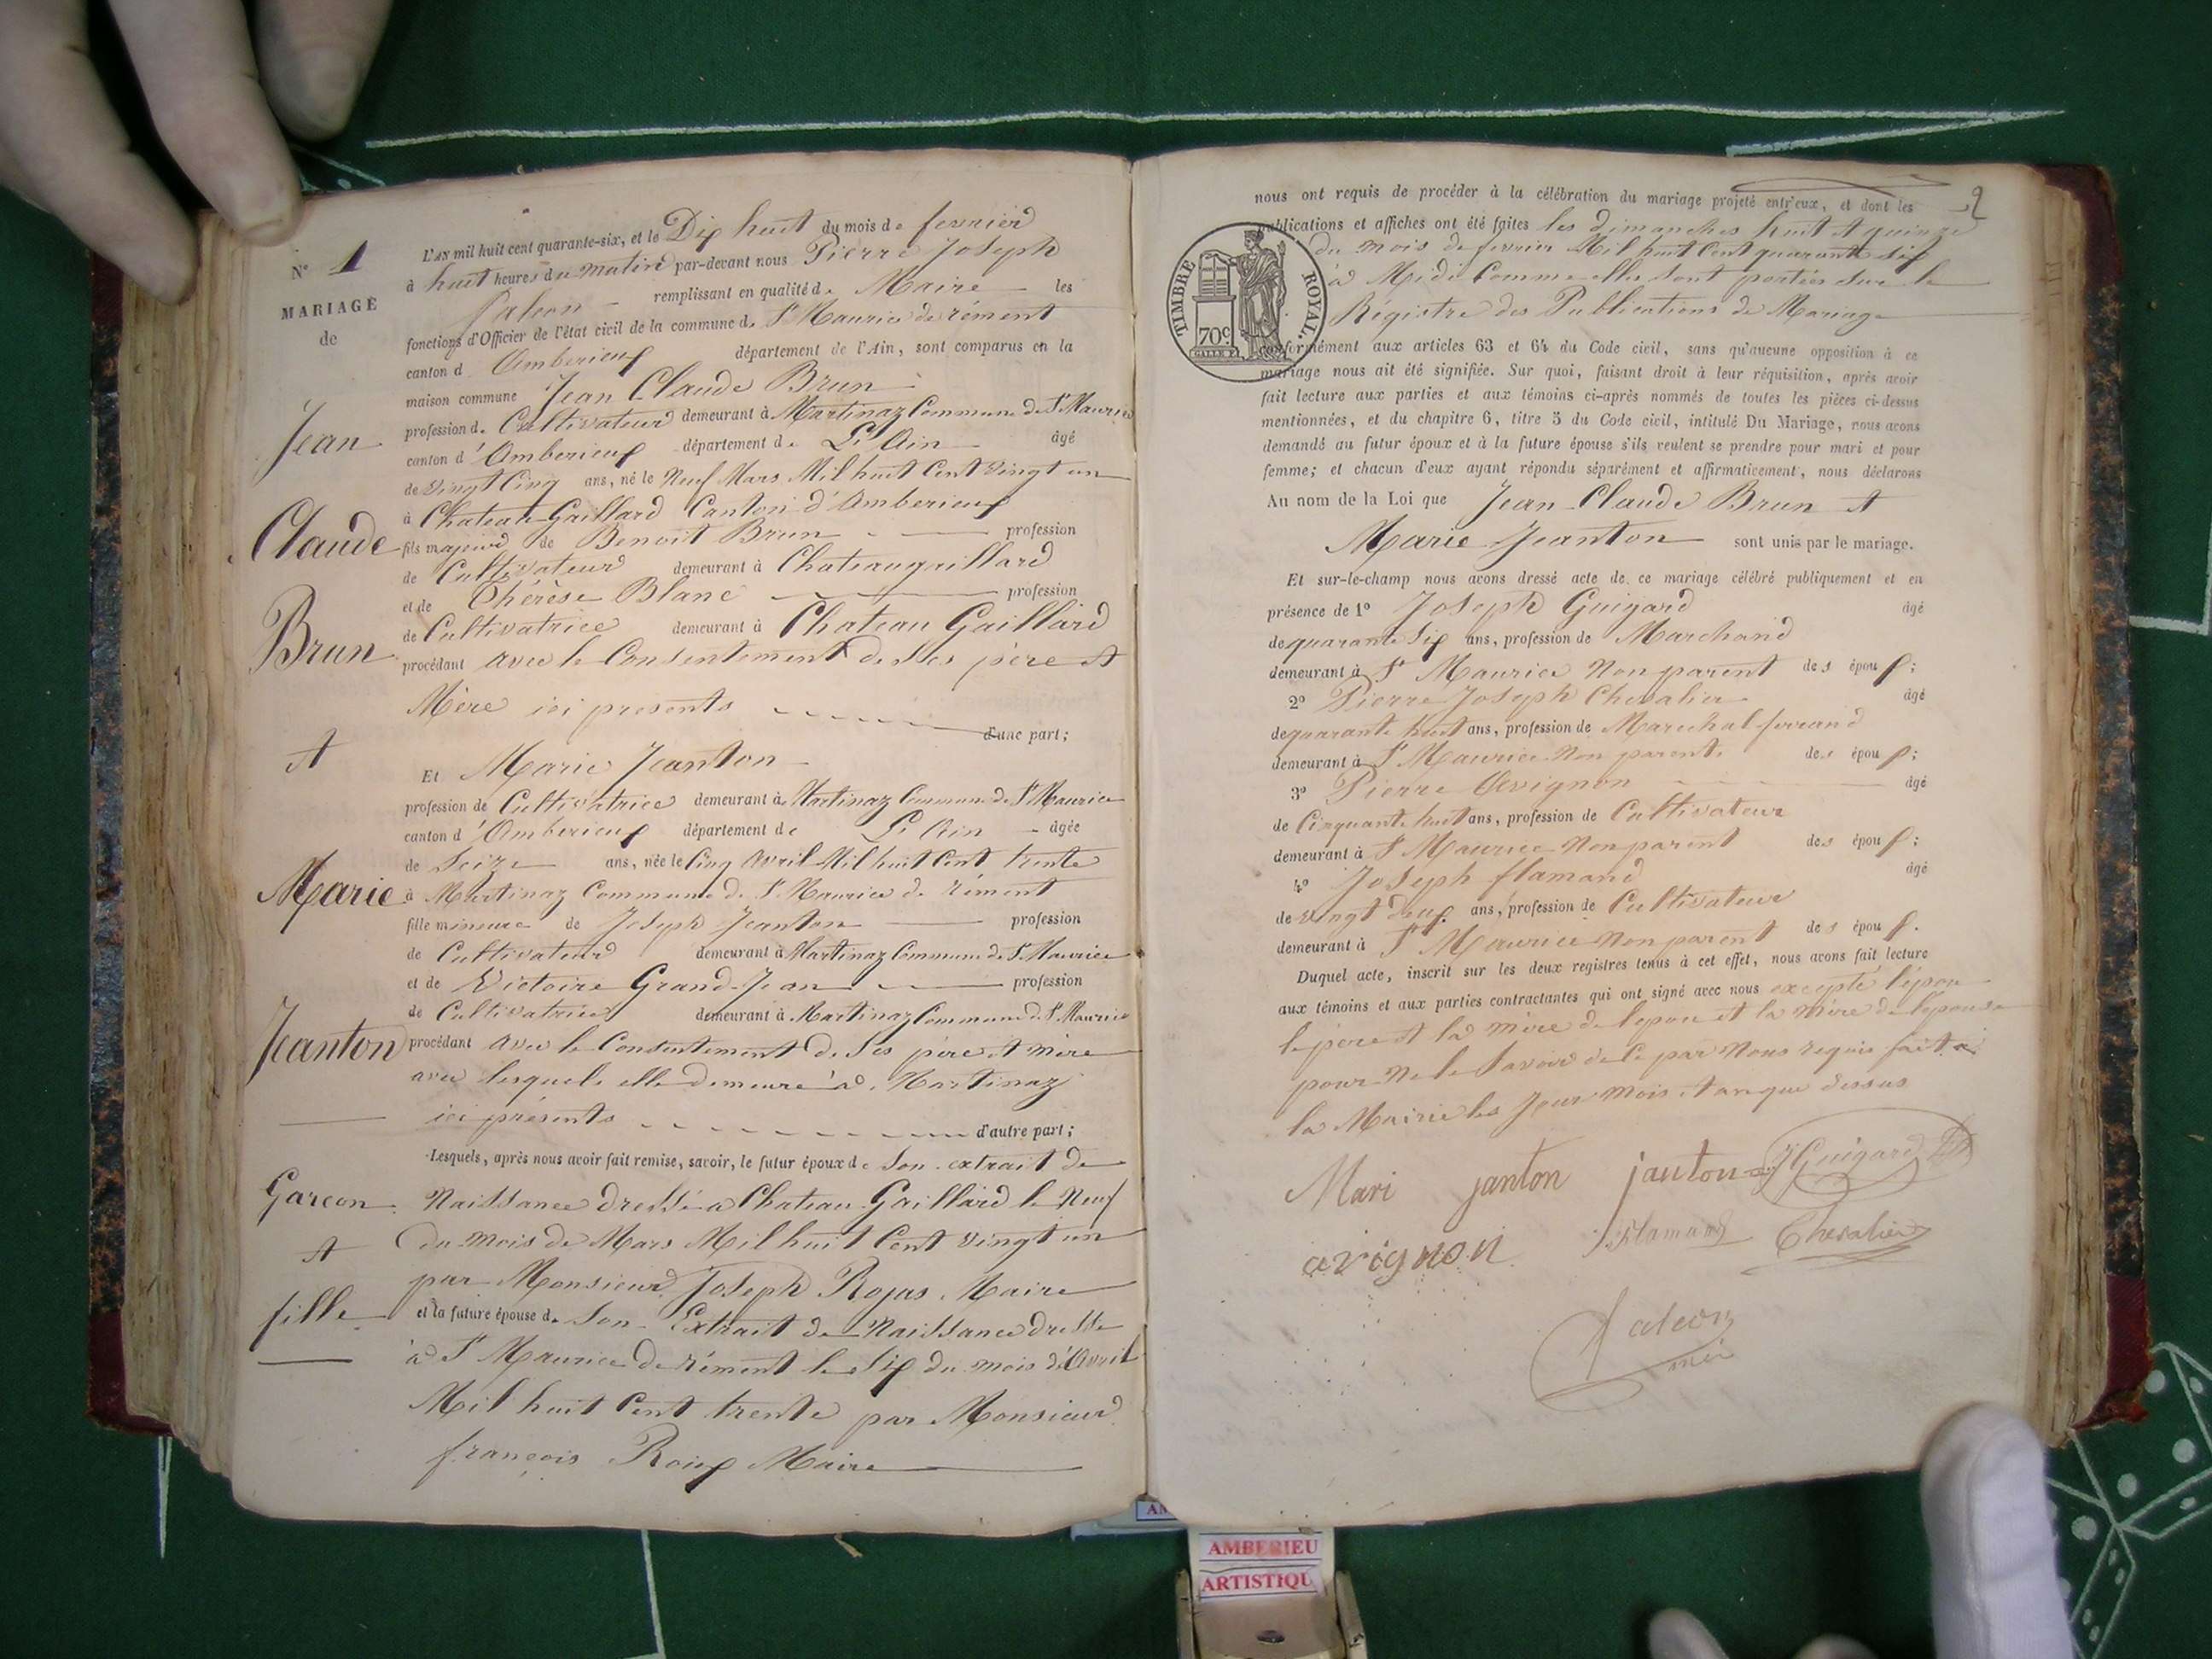 N° 1
MARIAGE
de
Jean
Claude
Brun
et
Marie
Jeanton
Garçon
et
fille
L'AN mil huit cent quarante-six, et le Dix huit du mois de fevrier
à huit heures du matin par-devant nous Pierre Joseph
remplissant en qualité de Maire les
fonctions d'Officier de l'état civil de la commune de St Maurice de rément
canton d Amberieux département de l'Ain, sont comparus en la
maison commune Jean Claude Brun
profession de Cultivateur demeurant à Martinaz Commune de St Maurice
canton d'Amberieux département de L'Ain âgé
de vingt Cinq ans, né le Neuf Mars Mil huit Cent vingt un
à Chateau Gaillard Canton d'Amberieux
fils majeur de Benoit Brun profession
de Cultivateur demeurant à Chateaugaillard
et de Thérèse Blanc profession
de Cultivatrice demeurant à Chateau Gaillard
procédant avec le Consentement de Ses père et
Mère ici presents
d'une part;
Et Marie Jeanton
profession de Cultivatrice demeurant à Martinaz Commune de St Maurice
canton d'Amberieux département de L'Ain âgée
de Seize ans, née le Cinq Avril Mil huit Cent trente
à Martinaz Commune de St Maurice de rément
fille mineure de Joseph Jeanton profession
de Cultivateur demeurant à Martinaz Commune de St Maurice
et de Victoire Grand-Jean profession
de Cultivatrice demeurant à Martinaz Commune de St Maurice
procédant avec le Consentement de Ses père et mère
avec lesquels elle demeure à Martinaz
ici présents d'autre part;
Lesquels, après nous avoir fait remise, savoir, le futur époux de Son extrait de
Naissance dressé a Chateau Gaillard le Neuf
du mois de Mars Mil huit Cent vingt un
par Monsieur Joseph Rojas Maire
et la future épouse de Son Extrait de Naissance dressé
à St Maurice de rément le Six du mois d'Avril
Mil huit Cent trente par Monsieur
françois Roux Maire
2
nous ont requis de procéder à la célébration du mariage projeté entr'eux, et dont les
publications et affiches ont été faites les dimanches huit et quinze
du mois de fevrier Mil huit Cent quarante six
à Midi Comme elles sont portées sur le
Régistre des Publications de Mariage
TIMBRE ROYAL.
70c
conformément aux articles 63 et 64 du Code civil, sans qu'aucune opposition à ce
mariage nous ait été signifiée. Sur quoi, faisant droit à leur réquisition, après avoir
fait lecture aux parties et aux témoins ci-après nommés de toutes les pièces ci-dessus
mentionnées, et du chapitre 6, titre 5 du Code civil, intitulé Du Mariage, nous avons
demandé au futur époux et à la future épouse s'ils veulent se prendre pour mari et pour
femme; et chacun d'eux ayant répondu séparément et affirmativement, nous déclarons
Au nom de la Loi que Jean-Claude Brun et
Marie Jeanton sont unis par le mariage.
Et sur-le-champ nous avons dressé acte de ce mariage célébré publiquement et en
présence de 1° Joseph Guigard âgé
de quarante Six ans, profession de Marchand
demeurant à St Maurice Non parent des époux;
2° Pierre Joseph Chevalier âgé
de quarante huit ans, profession de Marechal ferrand
demeurant à St Maurice Non parent des époux;
3° Pierre Avignon âgé
de Cinquante huit ans, profession de Cultivateur
demeurant à St Maurice Non parent des époux;
4° Joseph flamand âgé
de vingt deux ans, profession de Cultivateur
demeurant à St Maurice Non parent des époux.
Duquel acte, inscrit sur les deux registres tenus à cet effet, nous avons fait lecture
aux témoins et aux parties contractantes qui ont signé avec nous excepté l'epou
le père et la mère de l'epou et la mère de l'epouse
pour Ne le Savoir de Ce par Nous requis fait a
la Mairie les Jour mois et an que dessus
Mari janton janton J Guigard
avignon flamand Chevalier
AMBERIEU
ARTISTIQU